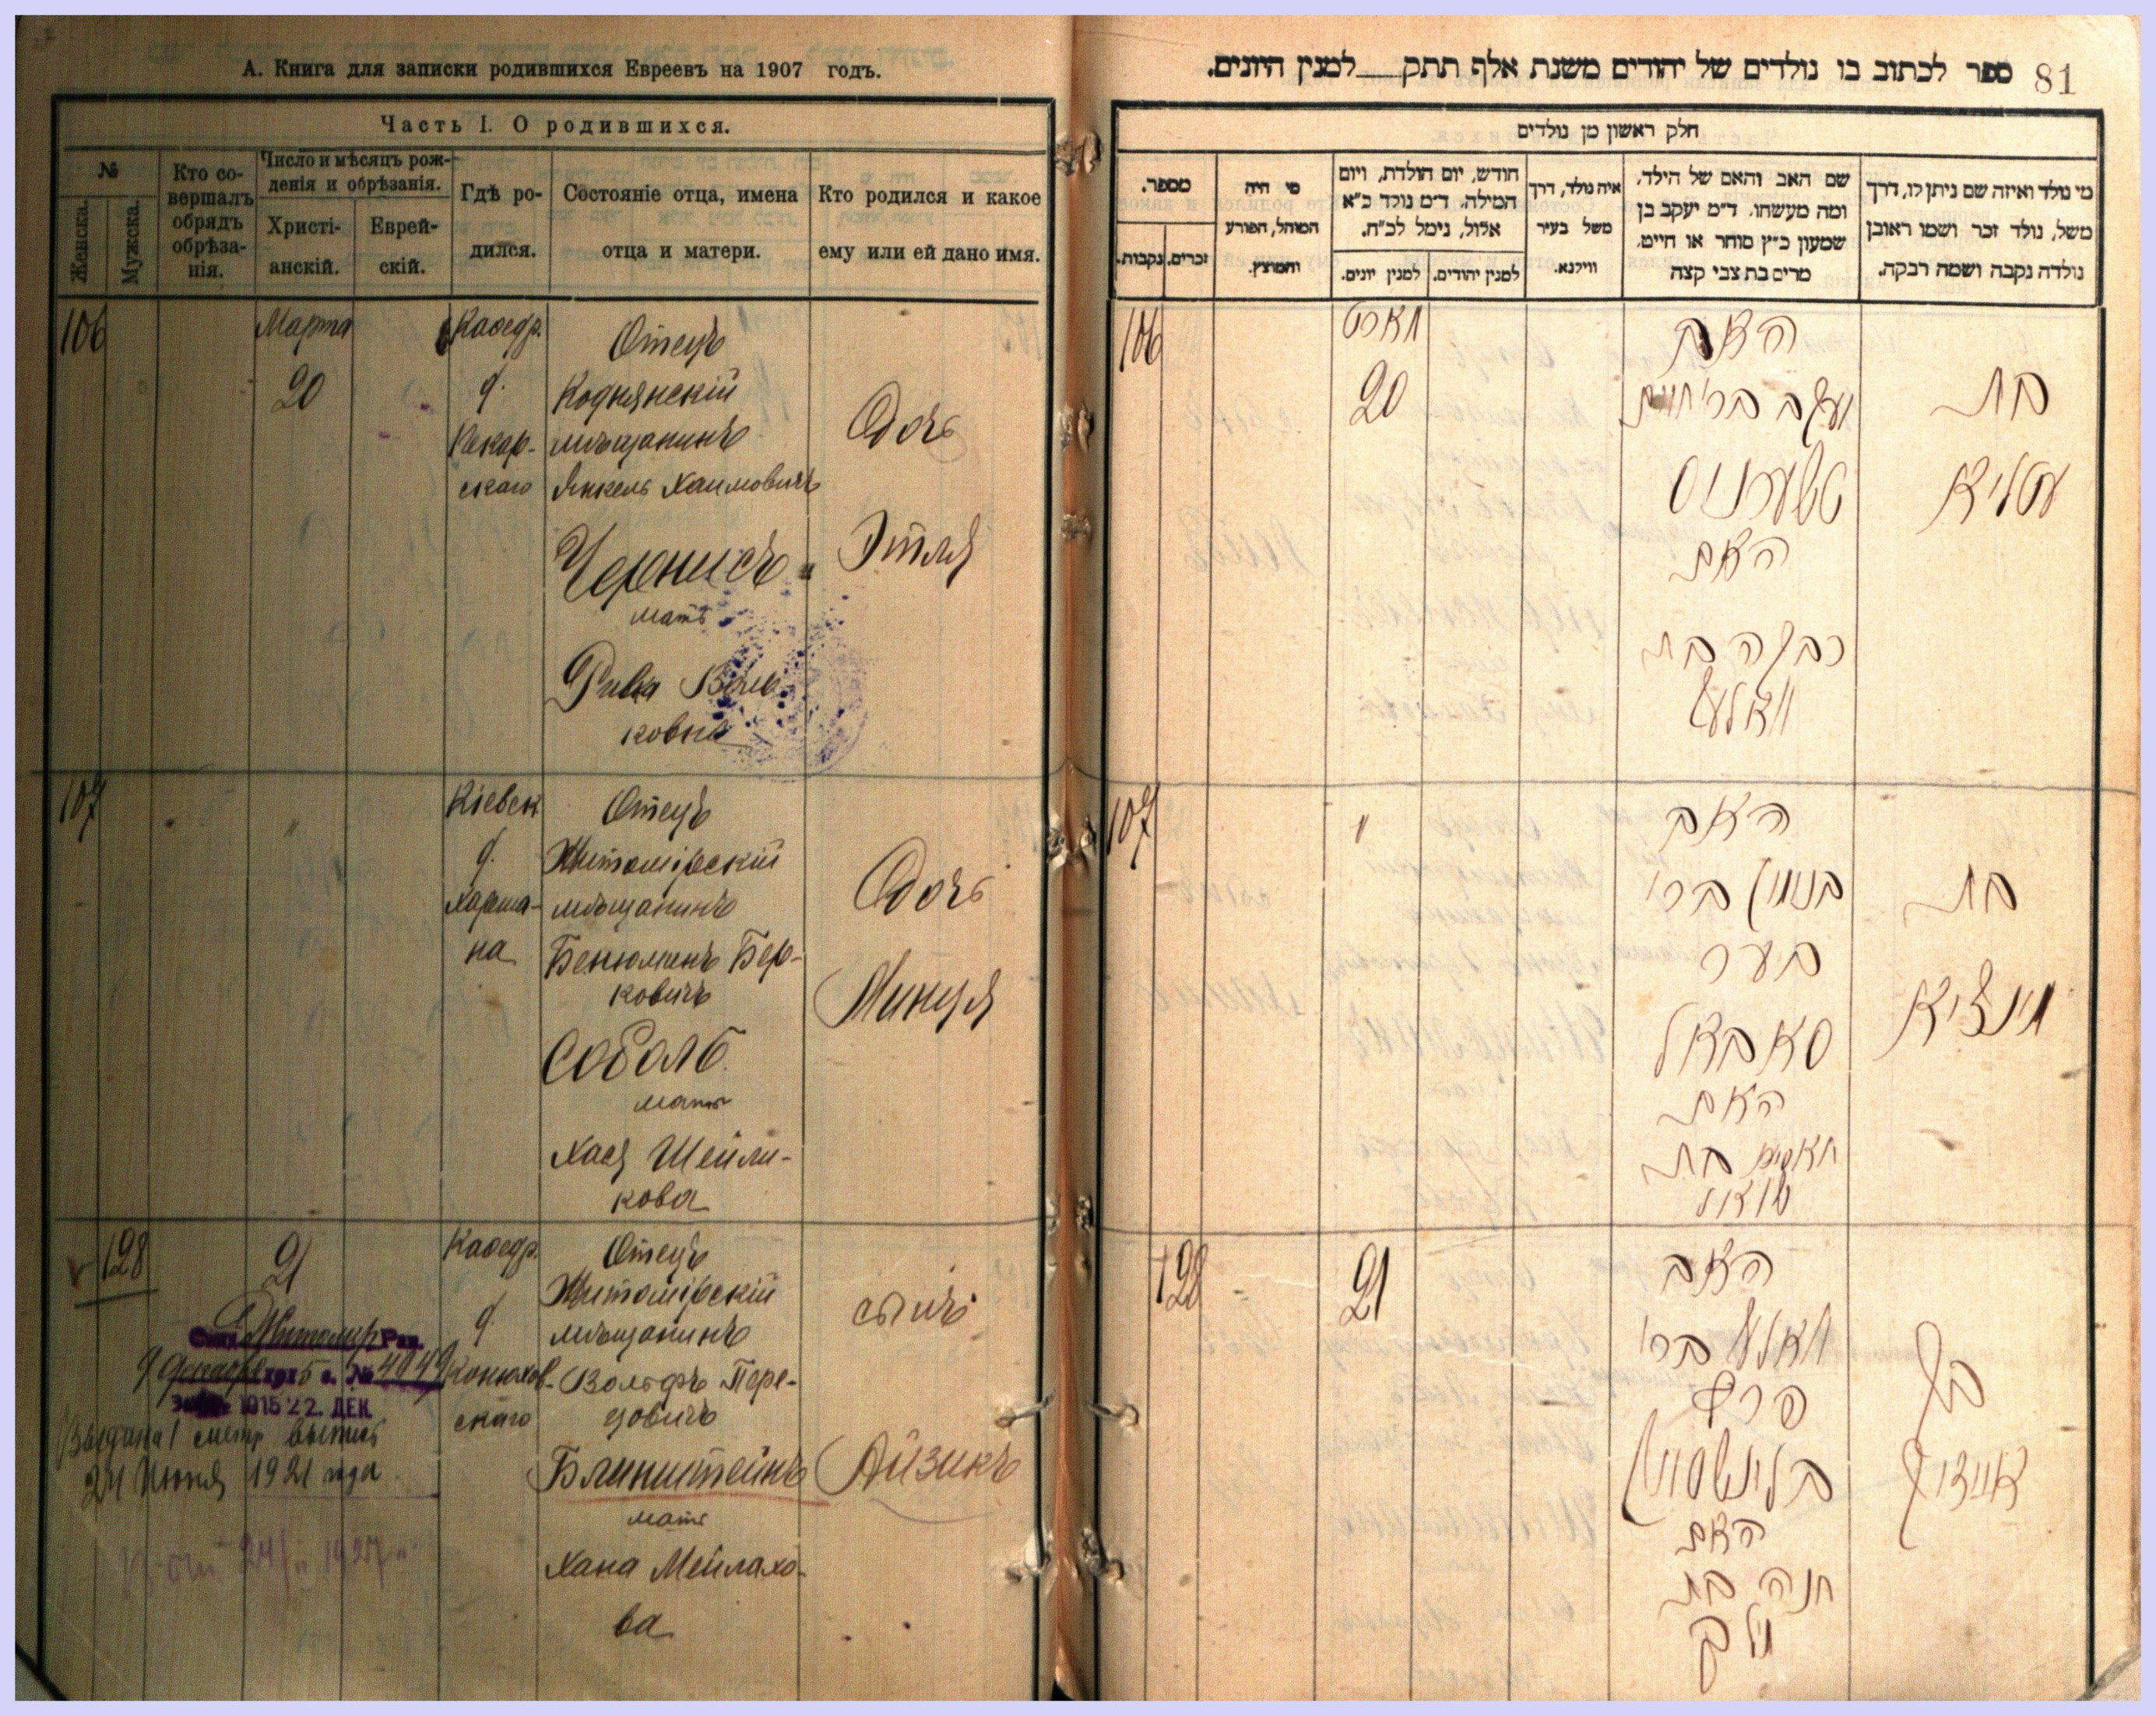 А. Книга для записки родившихся Евреевъ на 1907 годъ.
Часть I. О родившихся.
№
Женска.
Мужска.
Кто со-
вершалъ
обрядъ
обрѣза-
нія.
Число и мѣсяцъ рож-
денія и обрѣзанія.
Христі-
анскій.
Еврей-
скій.
Гдѣ ро-
дился.
Состояніе отца, имена
отца и матери.
Кто родился и какое
ему или ей дано имя.
106
Марта
20
Каѳедр.
Отецъ
Коднянскій
мѣщанинъ
Янкель Хаимовичъ
Черписъ
мать
Рива Воль-
ковна
Дочь
Этля
107
"
Кіевск
Отецъ
Житомірскій
мѣщанинъ
Бенюминъ Бер-
ковичъ
Соболь
мать
Хася Шейли-
кова
Дочь
Минця
128
21
Каѳедр.
Отецъ
Житомірскій
мѣщанинъ
Вольфъ Пере-
цовичъ
Блинштейнъ
мать
Хана Мейлахо-
ва
сынъ
Айзикъ
Житомир Рав.
№ 4049
1915 22. ДЕК
Выдана метр выпись
24 Июня 1921 года
ספר לכתוב בו נולדים של יהודים משנת אלף תתק__למנין היונים.
81
חלק ראשון מן נולדים
מספר.
נקבות.
זכרים.
מי היה
המוהל, הפורע
והמוצץ.
חודש, יום הולדת, ויום
המילה. ד״מ נולד כ״א
אלול, נימל לכ״ח.
למנין יונים.
למנין יהודים.
איה נולד, דרך
משל בעיר
ווילנא.
שם האב והאם של הילד,
ומה מעשהו. ד״מ יעקב בן
שמעון כ״ץ סוחר או חייט,
מרים בת צבי קצה
מי נולד ואיזה שם ניתן לו, דרך
משל, נולד זכר ושמו ראובן
נולדה נקבה ושמה רבקה.
106
מארט
20
האב
האם
רבקה בת
וואלף
בת
עטליא
107
"
האב
בנימין בר׳
בער
סאבאל
האם
חאסיא בת
בת
מינציא
128
21
האב
וואלף בר׳
פרץ
בלינשטיין
האם
חנה בת
מילך
בן
אייזיק